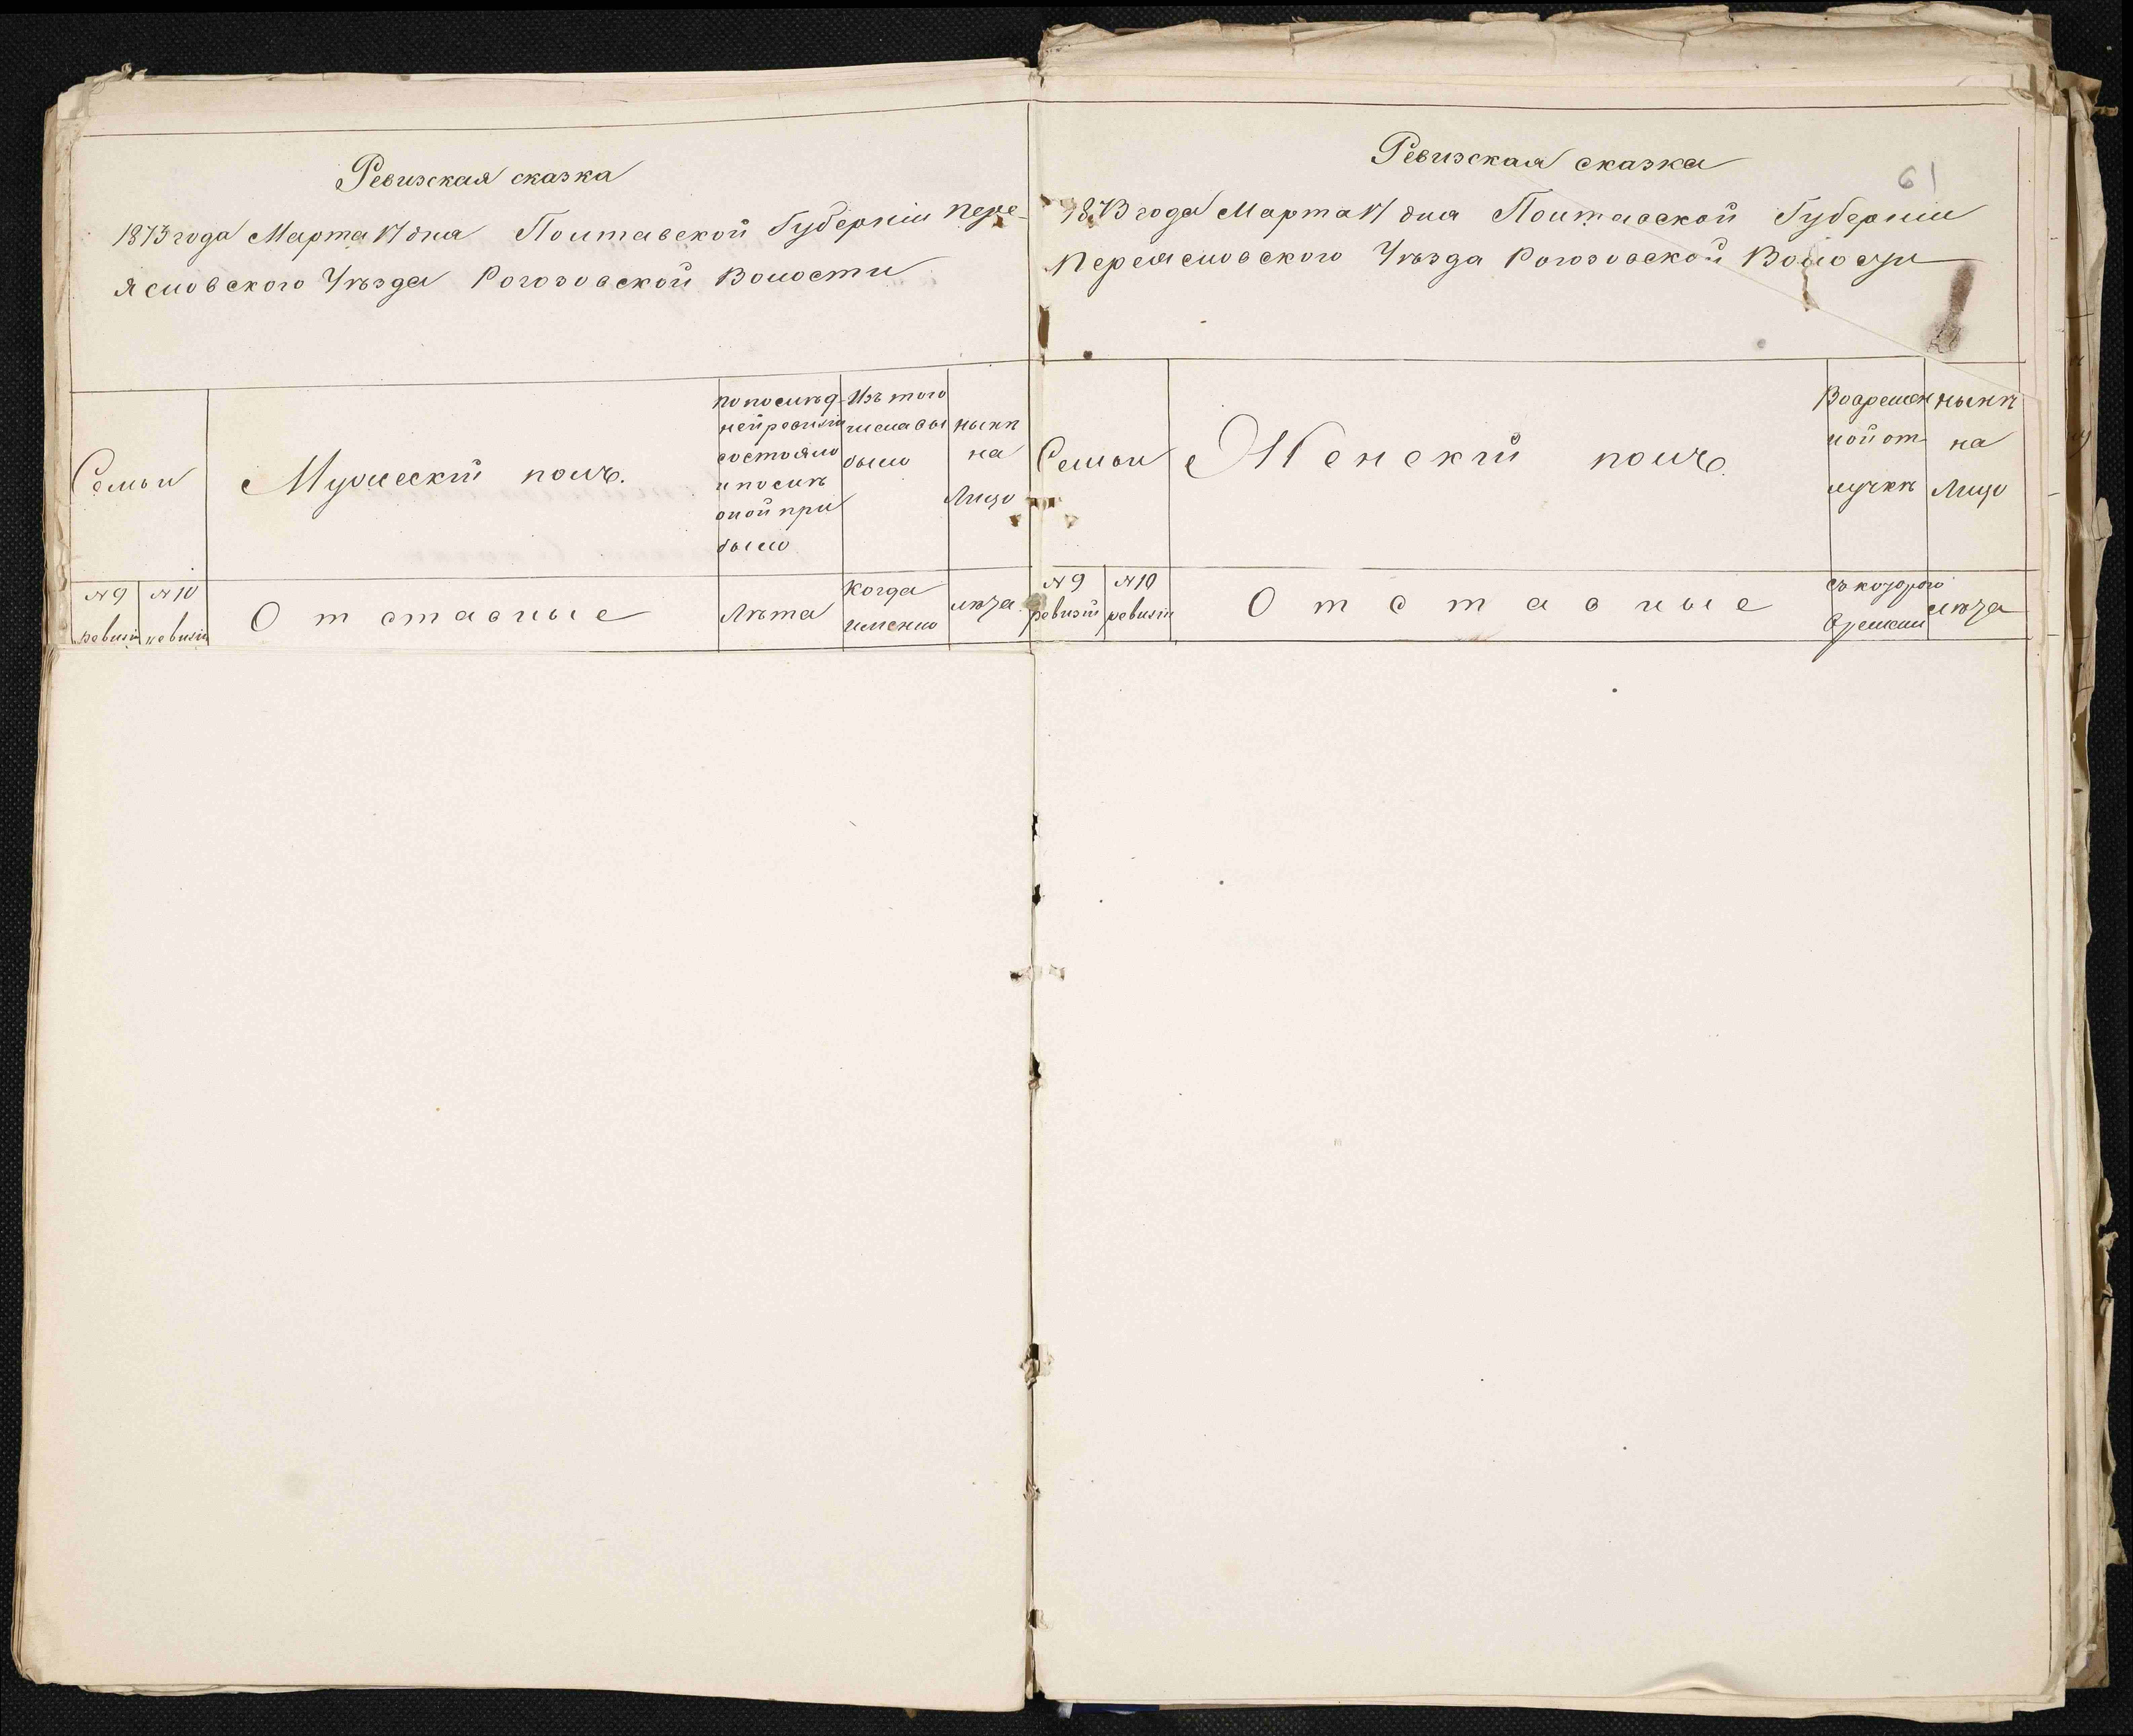 Ревизская сказка
1873 года Марта 17 дня Полтавской Губерніи Пере-
яславского Уѣзда Рогозовской Волости
Семьи
Мужескій полъ.
По послѣд
ней ревизіи
состояло
и послѣ
оной при
было
Изъ того
числа вы
было
нынѣ
на
Лицо
№ 9
ревизіи
№ 10
ревизіи
Отставные
Лѣта
Когда
именно
лѣта
61
Ревизская сказка
1873 года Марта 17 дня Полтавской Губерніи
Переясловского Уѣзда Рогозовской Волости
Семьи
Женскій полъ.
Во времен
ной от
лучкѣ
нынѣ
на
Лицо
№ 9
ревизіи
№ 10
ревизіи
Отставные
Съ которого
времени
лѣта